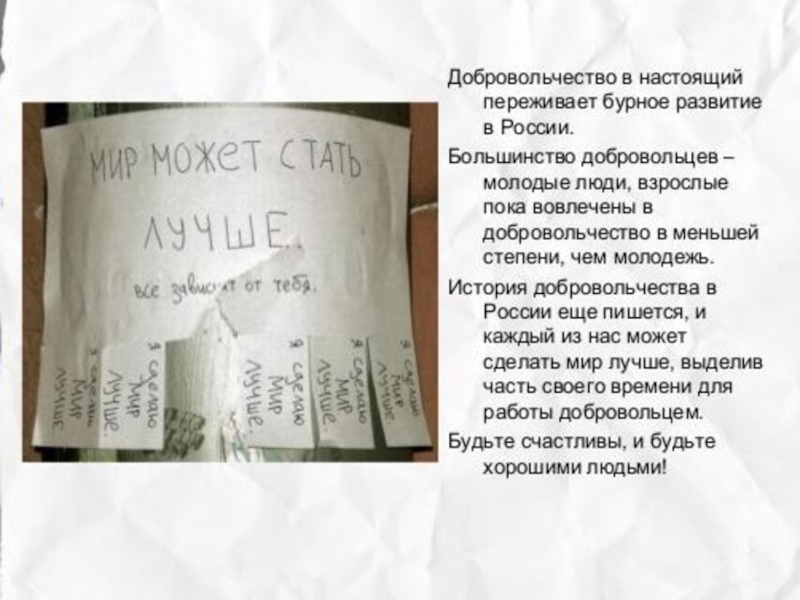 МИР МОЖЕТ СТАТЬ
ЛУЧШЕ.
все зависит от тебя.
я сделаю
МИР
ЛУЧШЕ.
я сделаю
МИР
ЛУЧШЕ.
я сделаю
МИР
ЛУЧШЕ.
я сделаю
МИР
ЛУЧШЕ.
я сделаю
МИР
ЛУЧШЕ.
Добровольчество в настоящий
переживает бурное развитие
в России.
Большинство добровольцев –
молодые люди, взрослые
пока вовлечены в
добровольчество в меньшей
степени, чем молодежь.
История добровольчества в
России еще пишется, и
каждый из нас может
сделать мир лучше, выделив
часть своего времени для
работы добровольцем.
Будьте счастливы, и будьте
хорошими людьми!